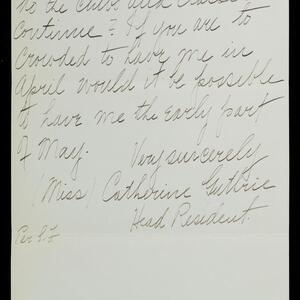 to the Clubs and
Continue? If you are to
crowded to have me in
April would it be possible
to have me the early part
of May.
Very sincerely
(Miss) Catherine Guthrie
Head Resident.
Per